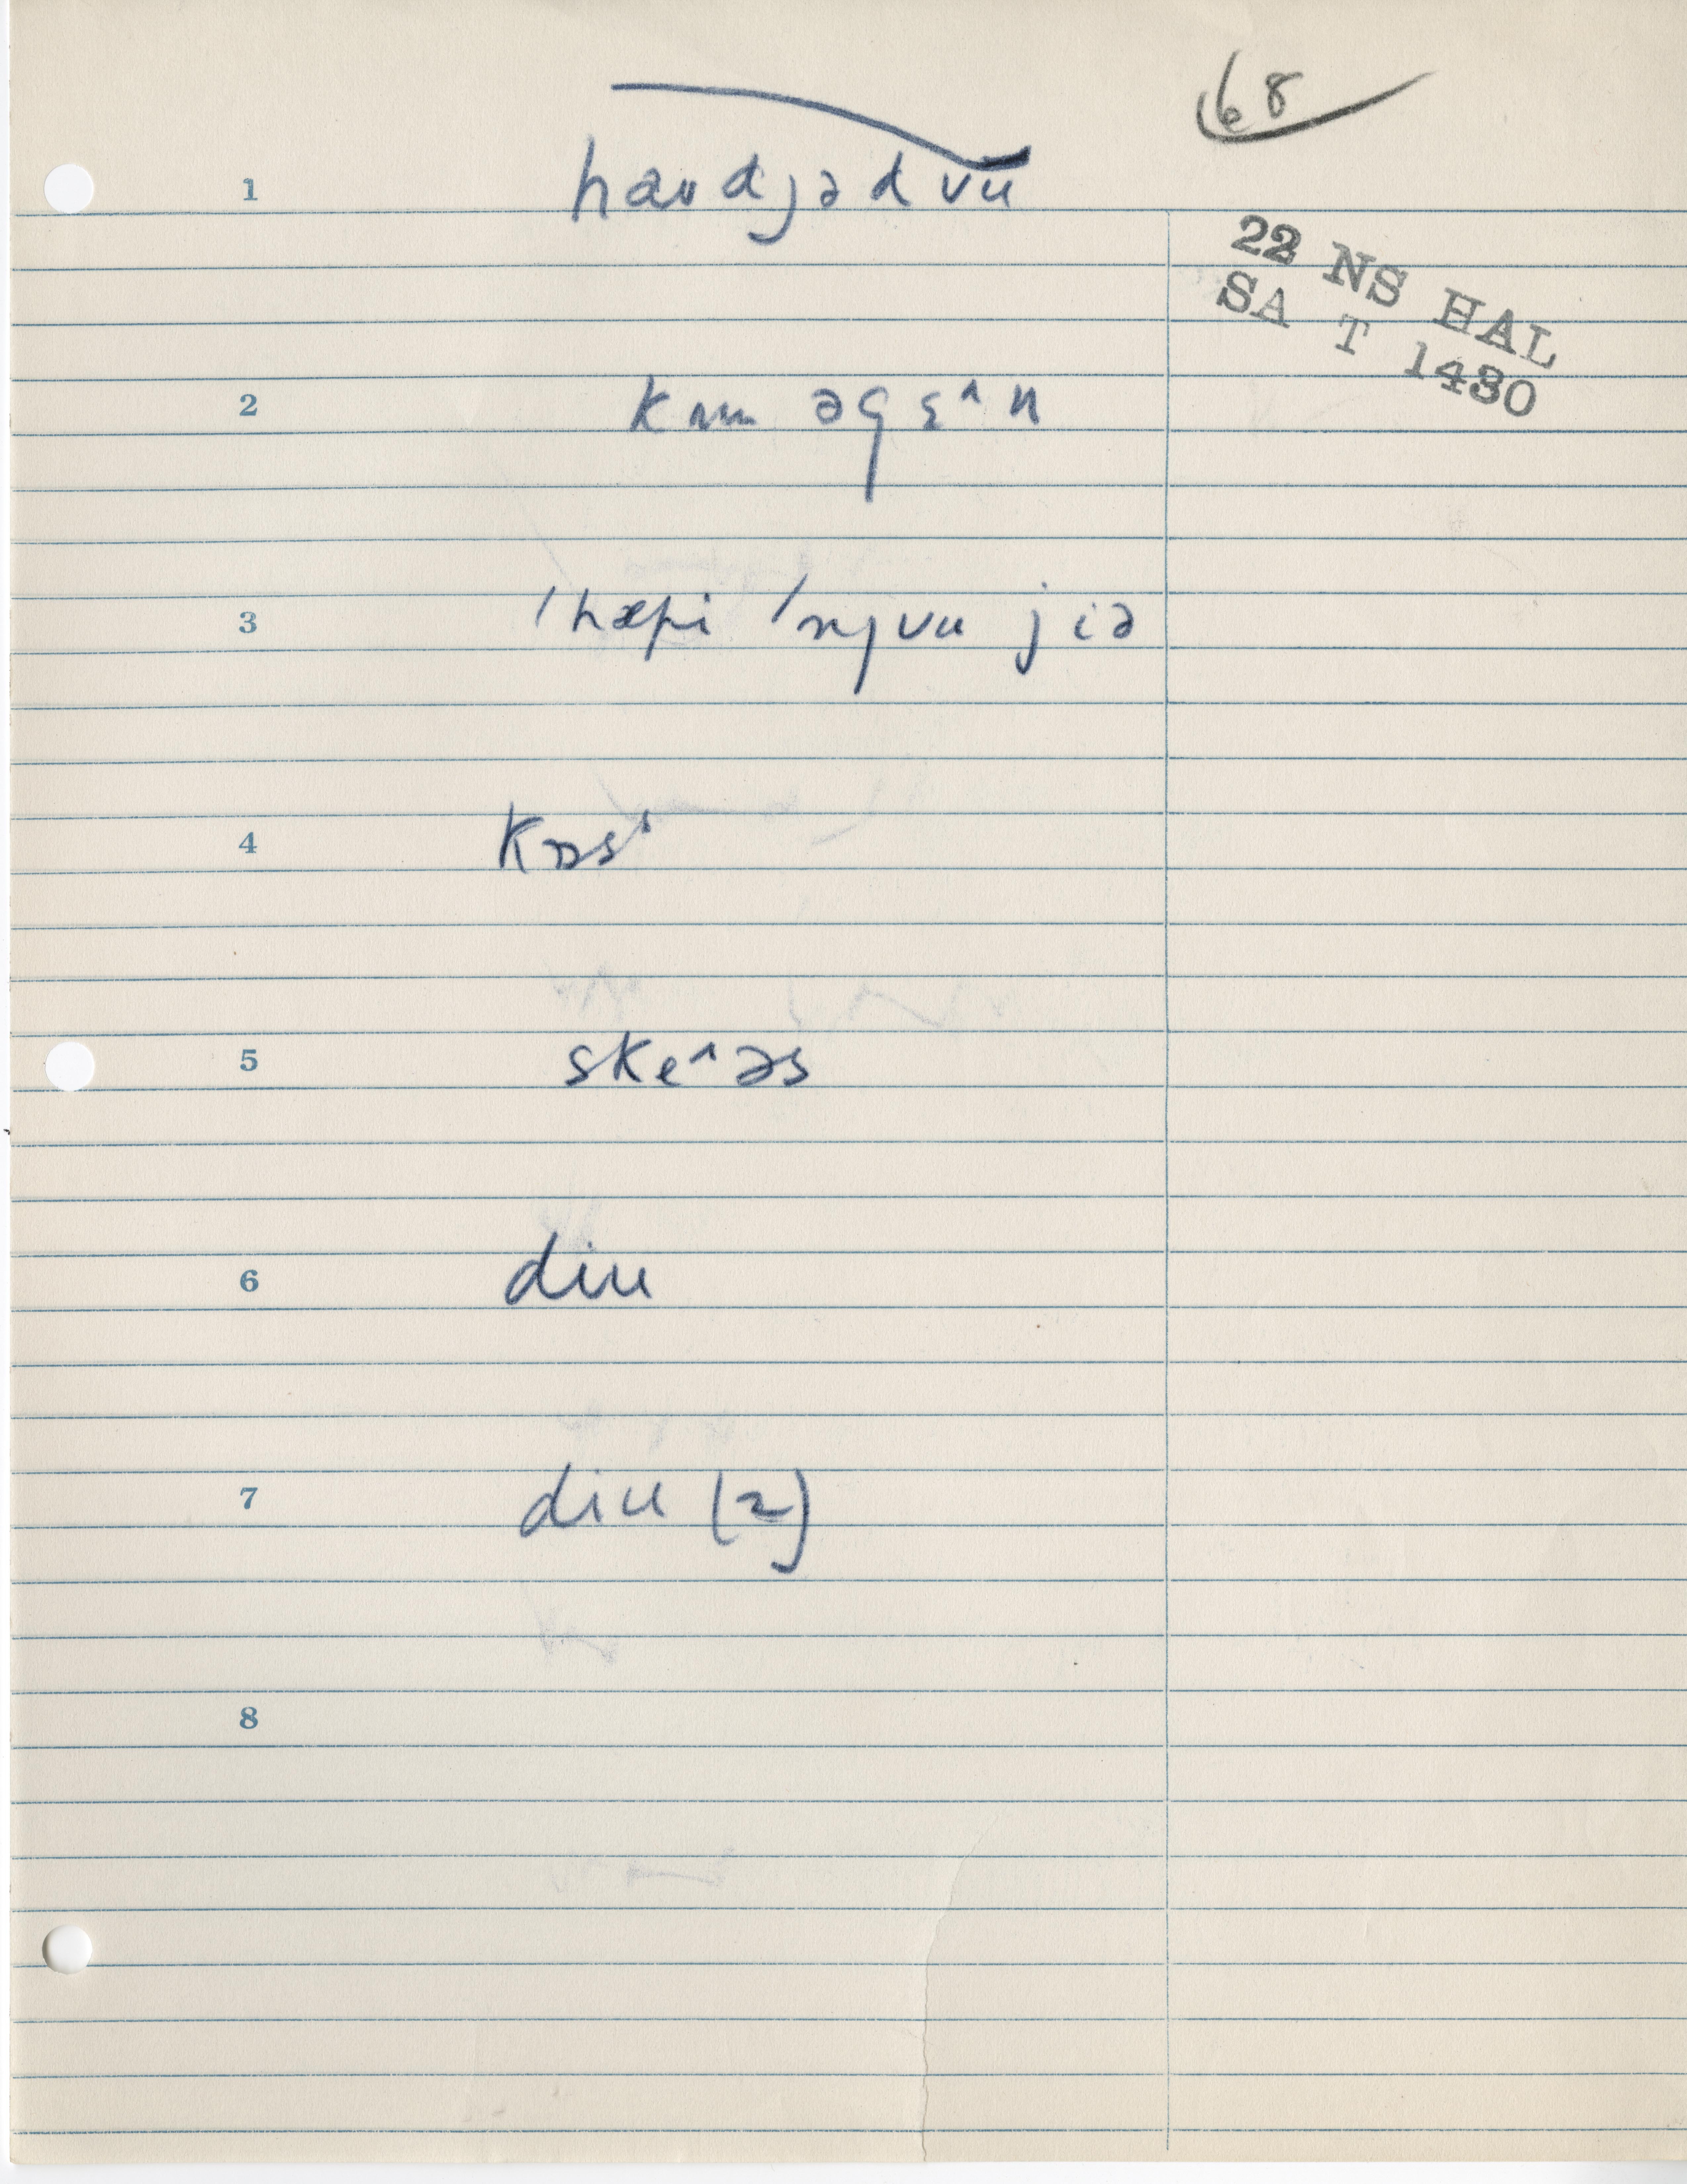 68
22 NS HAL
SA T 1430
1 haʊdjədvu
2 kʌm əgɛ^n
3 'hæpi 'nɪvu jiə
4 kɒs
5 ske^əs
6 diu
7 diu (2)
8